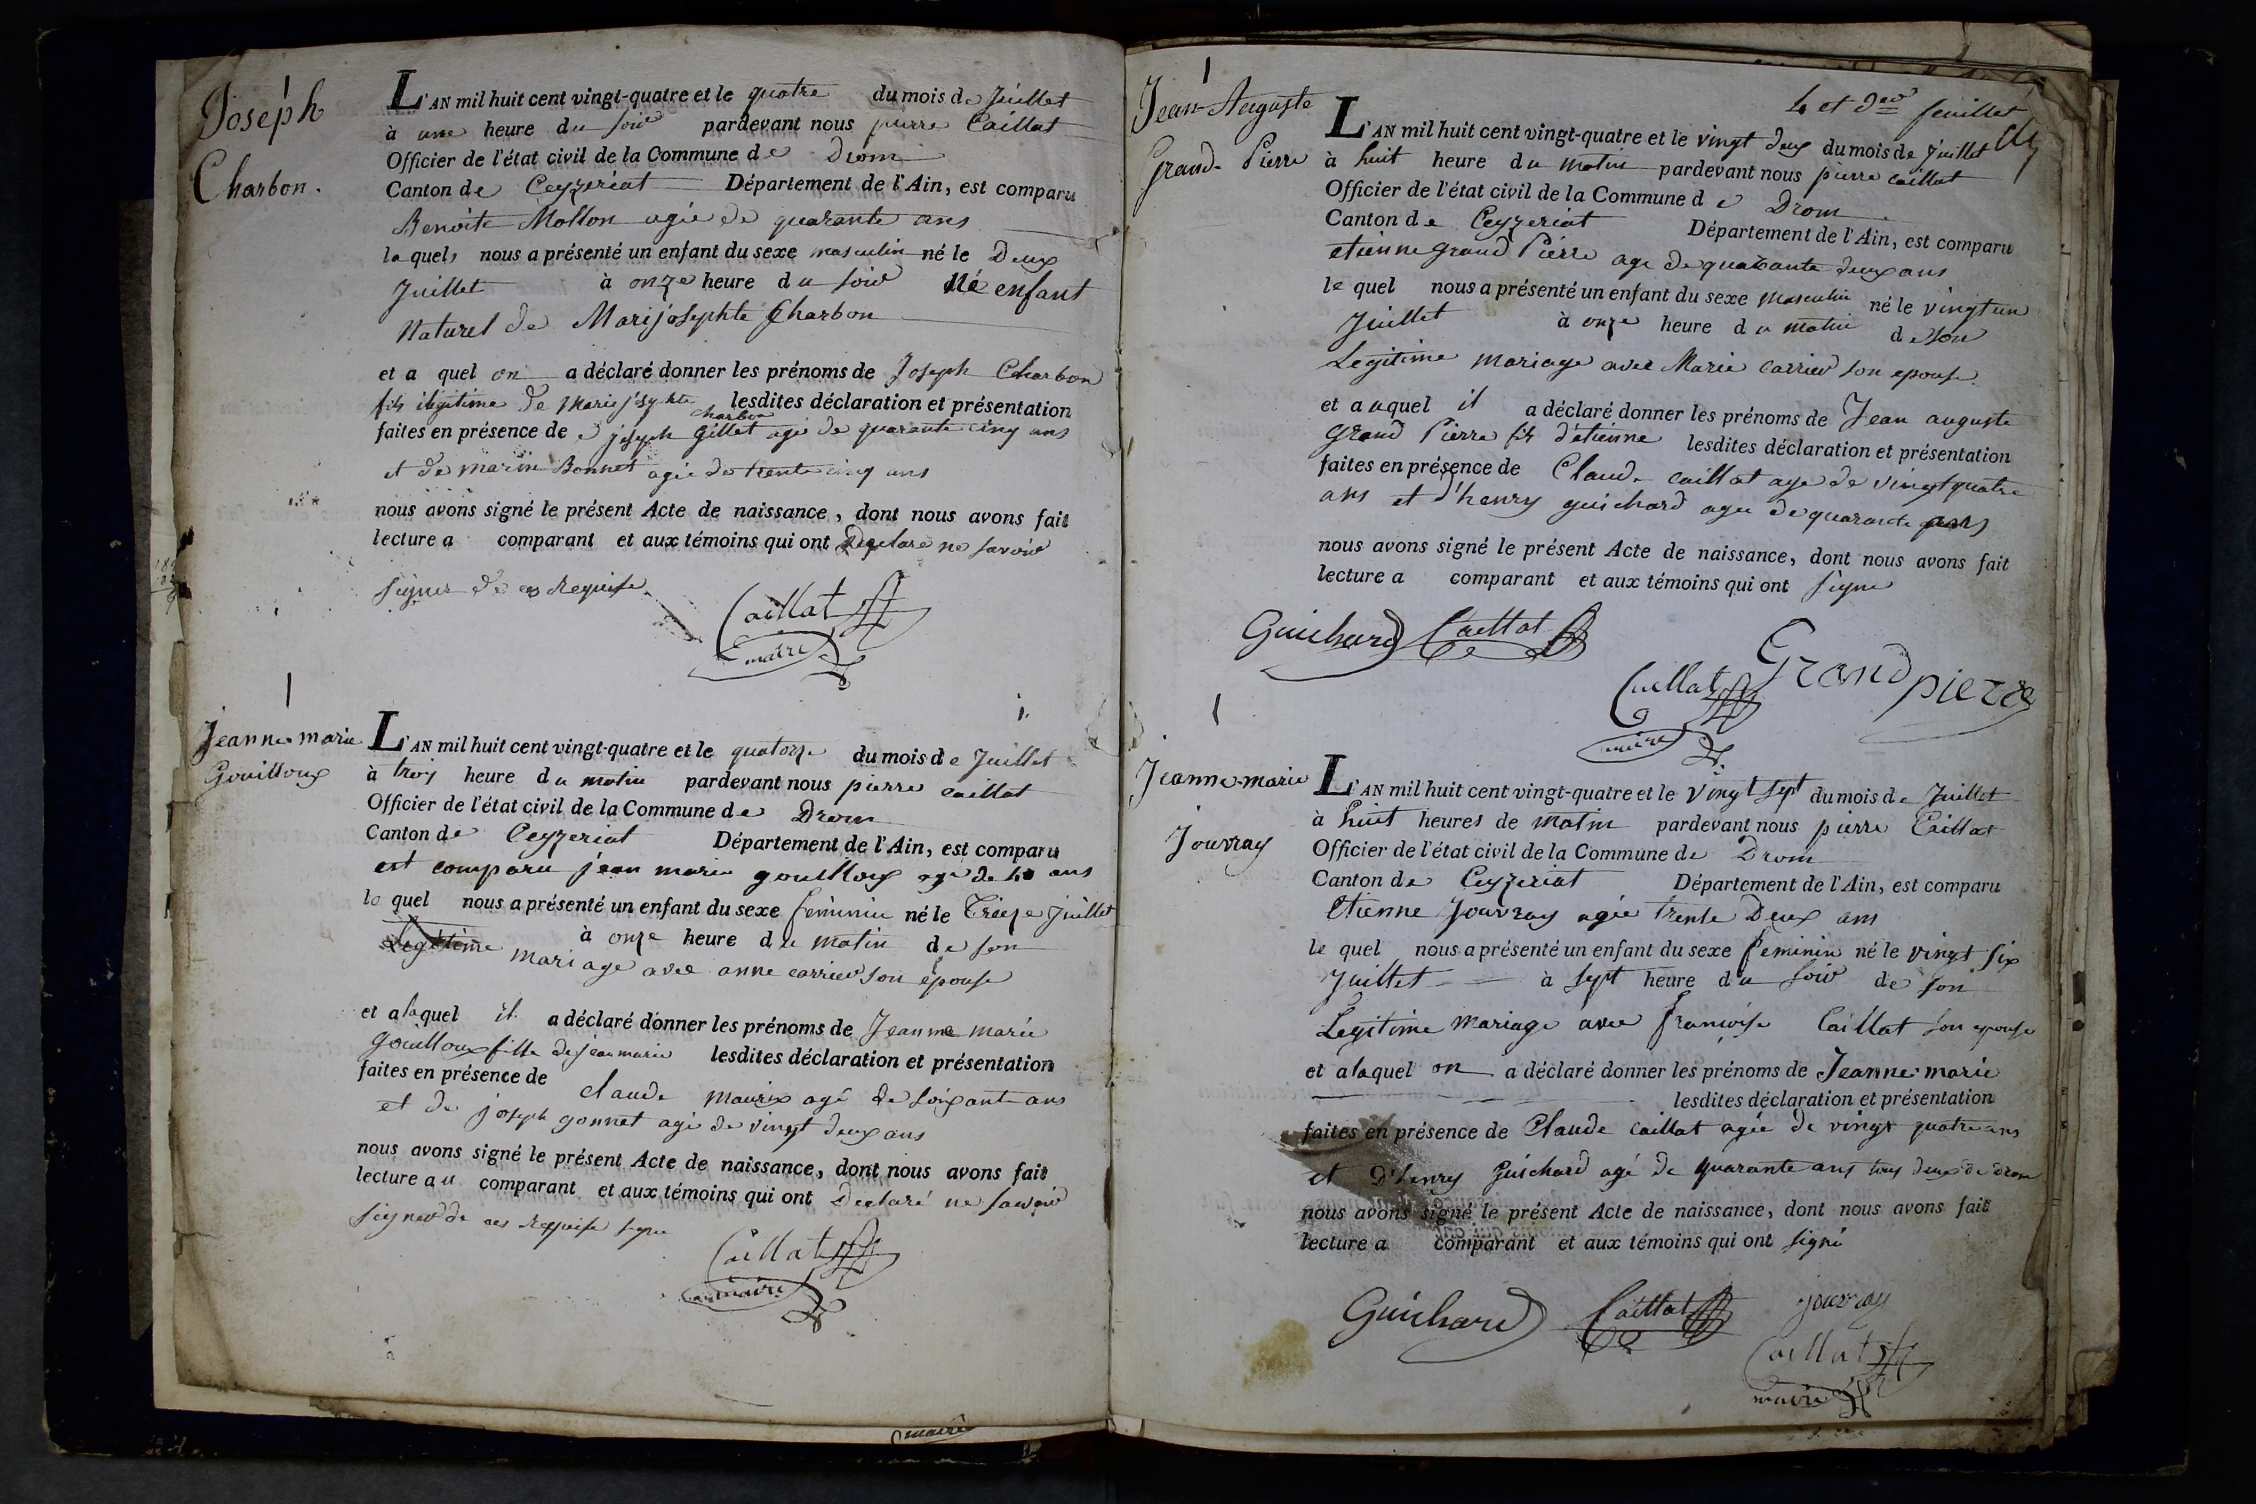 Joseph
Charbon.
L'AN mil huit cent vingt-quatre et le quatre du mois de Juillet
à une heure du soir pardevant nous pierre Caillat
Officier de l'état civil de la Commune de Drom
Canton de Ceyzeriat Département de l'Ain, est comparu
Benoite Mollon agée de quarante ans
laquele nous a présenté un enfant du sexe masculin né le Deux
Juillet à onze heure du soir Né enfant
Naturel de Marijosephte Charbon
et a quel on a déclaré donner les prénoms de Joseph Charbon
fils ilegitime de Marie josephte lesdites déclaration et présentation
charbon
faites en présence de joseph Gillet agé de quarante cinq ans
et de marin Bonnet agée de trente cinq ans
nous avons signé le présent Acte de naissance, dont nous avons fait
lecture a comparant et aux témoins qui ont Declaré ne savoir
signer de ce Requise
Caillat
maire
Jeanne-marie
Gouilloux
L'AN mil huit cent vingt-quatre et le quatorze du mois de Juillet
à trois heure du matin pardevant nous pierre caillat
Officier de l'état civil de la Commune de Drom
Canton de Ceyzeriat Département de l'Ain, est comparu
est comparu jean marie gouilloux agé de 40 ans
le quel nous a présenté un enfant du sexe feminin né le Treize Juillet
à onze heure du matin de son
Legitime mariage avec anne carrier son epouse
et alaquel il a déclaré donner les prénoms de Jeanne marie
gouilloux fille de jean marie lesdites déclaration et présentation
faites en présence de claude maurix agé de soixante ans
et de joseph gonnet agé de vingt deux ans
nous avons signé le présent Acte de naissance, dont nous avons fait
lecture au comparant et aux témoins qui ont Declaré ne savoir
signer de ces Requise
Caillat
maire
maire
4 et der feuillet
Jean-Auguste
Grand-Pierre
L'AN mil huit cent vingt-quatre et le vingt deux du mois de Juillet
à huit heure du matin pardevant nous pierre caillat
Officier de l'état civil de la Commune de Drom
Canton de Ceyzeriat Département de l'Ain, est comparu
etienne grand Pierre age de quarante deux ans
le quel nous a présenté un enfant du sexe masculin né le vingt un
Juillet à onze heure du matin de son
Legitime mariage avec Marie carrier son epouse.
et auquel il a déclaré donner les prénoms de Jean auguste
grand Pierre fils d'etienne lesdites déclaration et présentation
faites en présence de Claude caillat age de vingt quatre
ans et d'henry guichard agee de quarante ans
nous avons signé le présent Acte de naissance, dont nous avons fait
lecture a comparant et aux témoins qui ont signe
Guichard Caillat
Grand
pierre
Caillat
maire
Jeanne-marie
Jouvray
L'AN mil huit cent vingt-quatre et le vingt sept du mois de Juillet
à huit heures de matin pardevant nous pierre Caillat
Officier de l'état civil de la Commune de Drom
Canton de Ceyzeriat Département de l'Ain, est comparu
Etienne Jouvray agée trente Deux ans
le quel nous a présenté un enfant du sexe feminin né le vingt six
Juillet à sept heure du soir de son
Legitime mariage avec francoise Caillat son epouse
et alaquel on a déclaré donner les prénoms de Jeanne-marie
lesdites déclaration et présentation
faites en présence de Claude caillat agée de vingt quatre ans
et D'henry Guichard agé de quarante ans tous deux de Drom
nous avons signé le présent Acte de naissance, dont nous avons fait
lecture a comparant et aux témoins qui ont signé
Guichard Caillat Jouvray
Caillat
maire